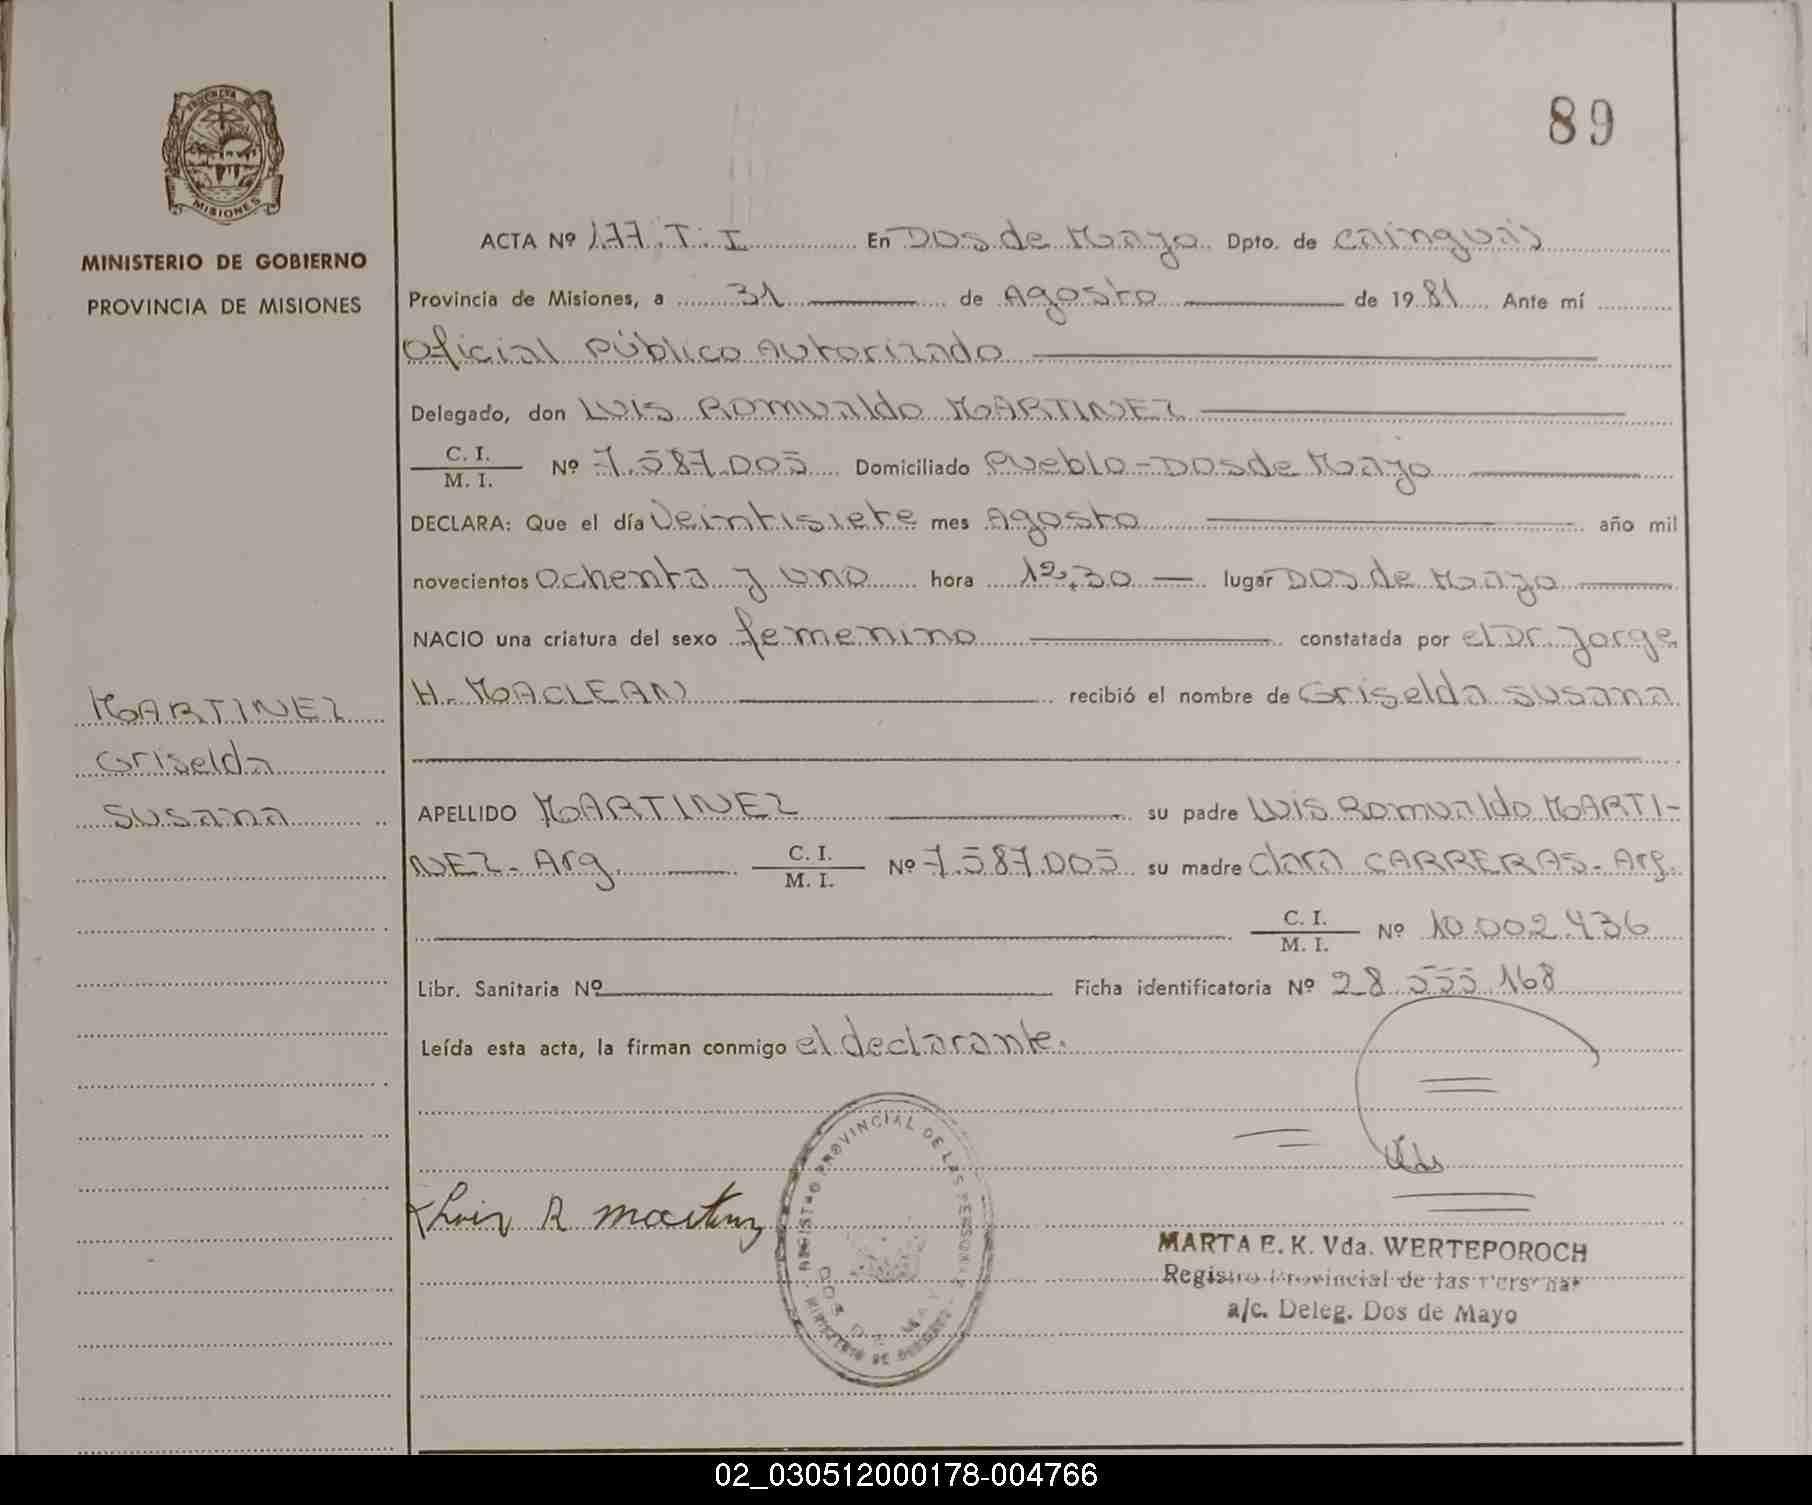 PROVINCIA DE
MISIONES
MINISTERIO DE GOBIERNO
PROVINCIA DE MISIONES
MARTINEZ
Griselda
Susana
89
ACTA Nº 177. T. I En Dos de Mayo Dpto. de Cainguás
Provincia de Misiones, a 31 de Agosto de 1981 Ante mí
Oficial Público Autorizado
Delegado, don Luis Romualdo MARTINEZ
C. I. / M. I. Nº 7.587.005 Domiciliado Pueblo - Dos de Mayo
DECLARA: Que el día Veintisiete mes Agosto año mil
novecientos Ochenta y uno hora 12,30 lugar Dos de Mayo
NACIO una criatura del sexo femenino constatada por el Dr. Jorge
H. MACLEAN recibió el nombre de Griselda Susana
APELLIDO MARTINEZ su padre Luis Romualdo MARTI-
NEZ - Arg. C. I. / M. I. Nº 7.587.005 su madre Clara CARRERAS - Arg.
C. I. / M. I. Nº 10.002.436
Libr. Sanitaria Nº Ficha identificatoria Nº 28.555.168
Leída esta acta, la firman conmigo el declarante.
Luis R Martinez
REGISTRO PROVINCIAL DE LAS PERSONAS
DOS DE MAYO
MINISTERIO DE GOBIERNO
MARTA E. K. Vda. WERTEPOROCH
Registro Provincial de las Personas
a/c. Deleg. Dos de Mayo
02_030512000178-004766